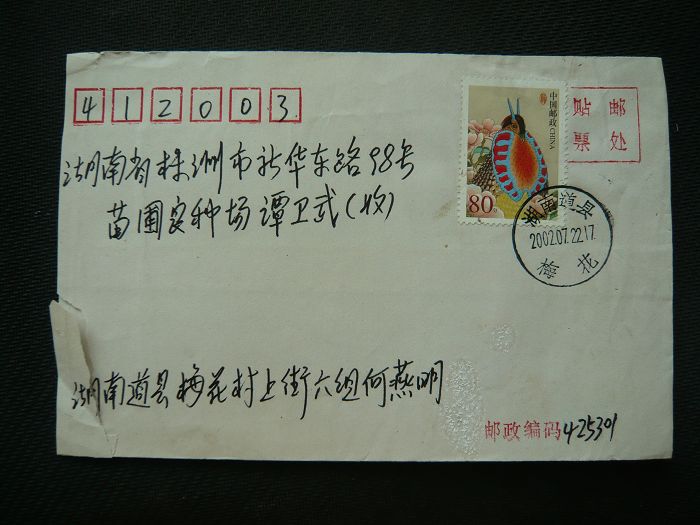 412003
中国邮政 CHINA
80
贴 邮
票 处
湖南省株洲市新华东路98号
苗圃良种场谭卫武(收)
湖南道县
2002.07.22.17
梅花
湖南道县梅花村上街六组何燕明
邮政编码425301